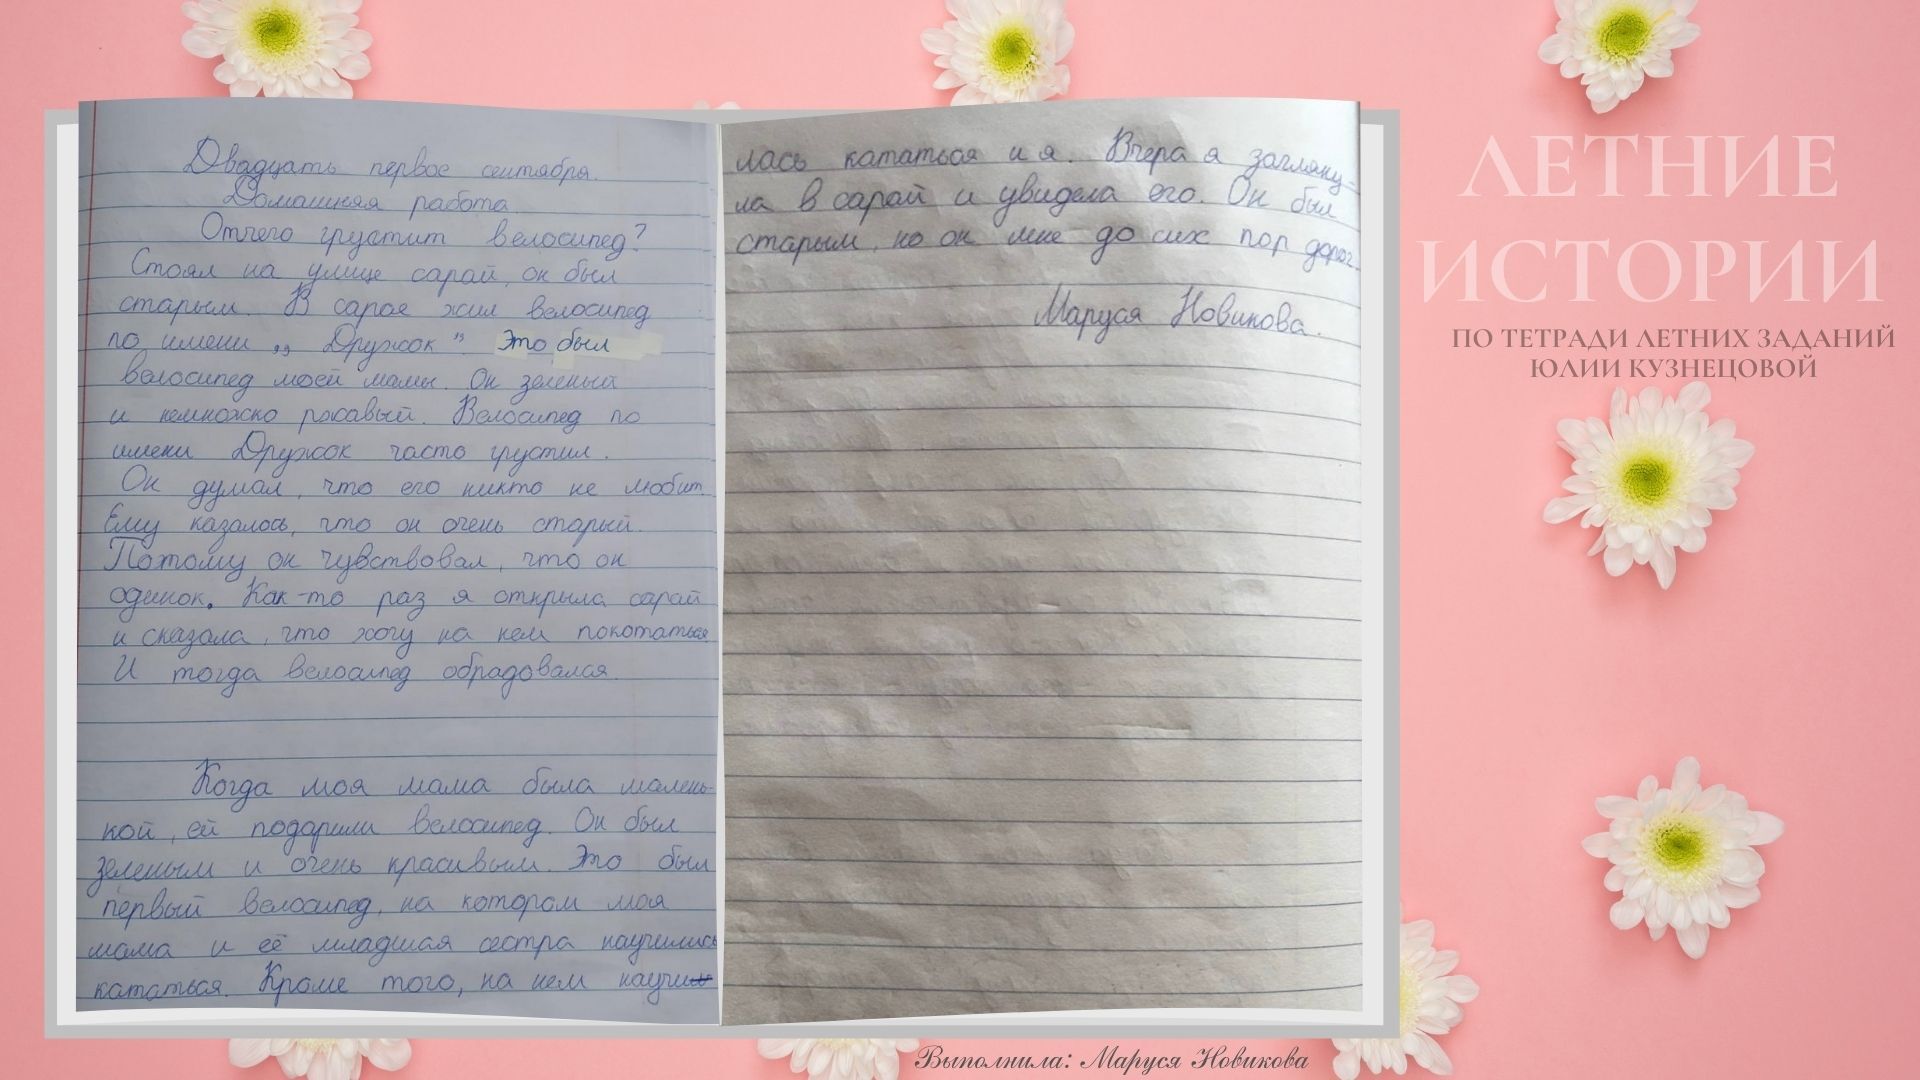 Двадцать первое сентября.
Домашняя работа.
Отчего грустит велосипед?
Стоял на улице сарай, он был
старым. В сарае жил велосипед
по имени „ Дружок ". Это был
велосипед моей мамы. Он зеленый
и немножко ржавый. Велосипед по
имени Дружок часто грустил.
Он думал, что его никто не любит.
Ему казалось, что он очень старый.
Потому он чувствовал, что он
одинок. Как-то раз я открыла сарай
и сказала, что хочу на нем покататься.
И тогда велосипед обрадовался.
Когда моя мама была малень-
кой, ей подарили велосипед. Он был
зеленым и очень красивым. Это был
первый велосипед, на котором моя
мама и её младшая сестра научились
кататься. Кроме того, на нем научи
лась кататься и я. Вчера я загляну-
ла в сарай и увидела его. Он был
старым, но он мне до сих пор дорог.
Маруся Новикова.
ЛЕТНИЕ
ИСТОРИИ
ПО ТЕТРАДИ ЛЕТНИХ ЗАДАНИЙ
ЮЛИИ КУЗНЕЦОВОЙ
Выполнила: Маруся Новикова